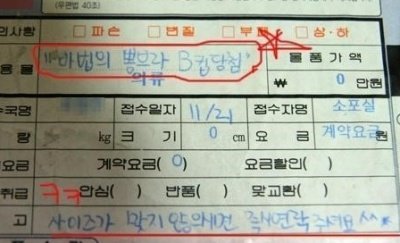 (우편법 40조)
의사항 □ 파손 □ 변질 □ 부패 □ 상·하
용물 "마법의 뽕브라 B컵당첨" 의류 물품가액 ₩ 0 만원
수국명 접수일자 11/21 접수자명 소포실
량 kg 크기 0 cm 요금 계약요금
요금 계약요금( 0 ) 요금할인( )
취급 ㅋㅋ 안심( ) 반품( ) 맞교환( )
고 사이즈가 맞지 않으시면 연락주세요 ^^